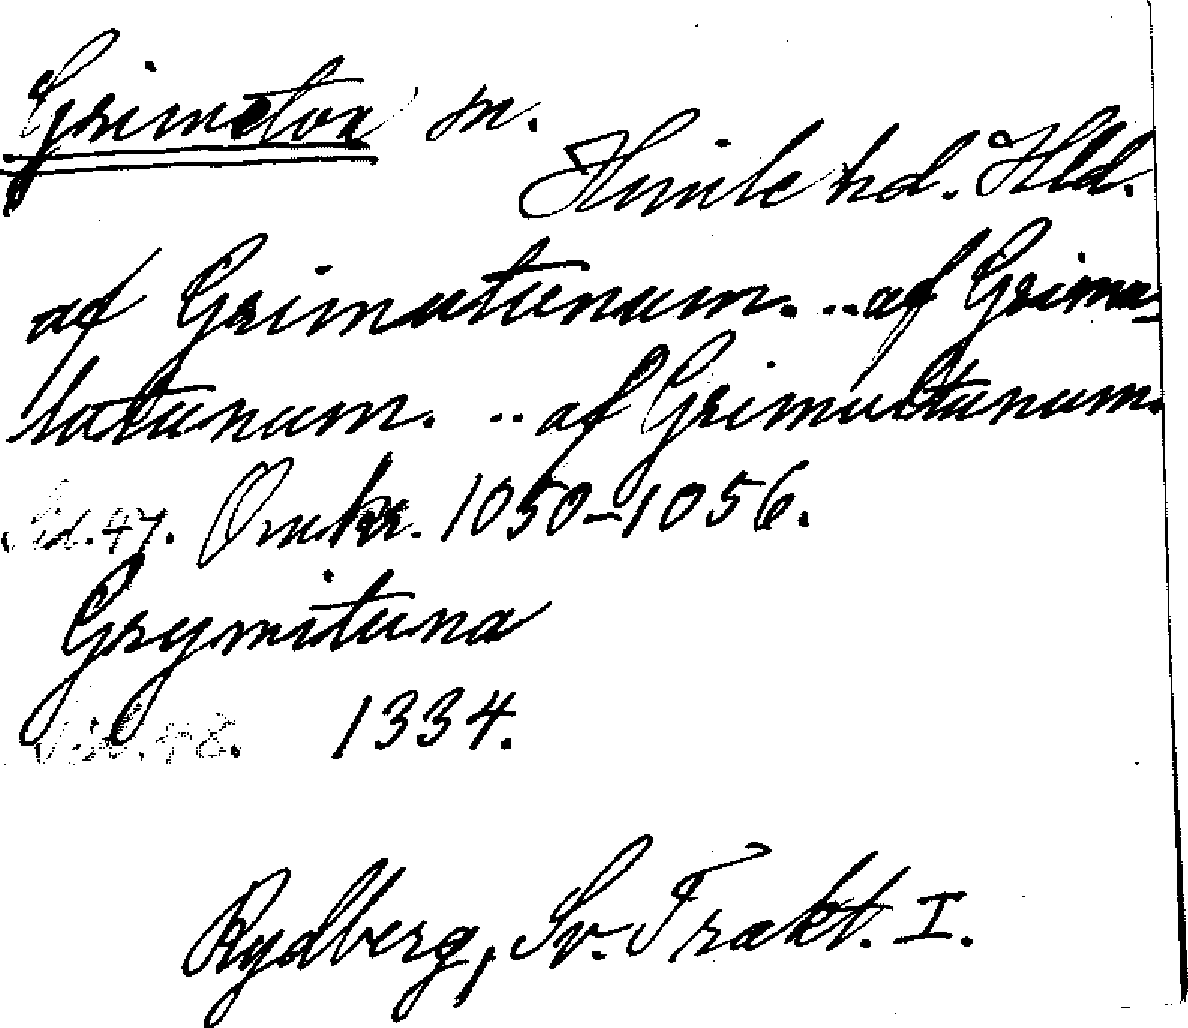 Grimeton sn.
Himle hd. Hld.
af Grimutunum. .. af Grimu-
latunum. .. af Grimultunum.
Sid. 47. Omkr. 1050-1056.
Grymituna
Sid. 48. 1334.
Rydberg, Sv. Trakt. I.